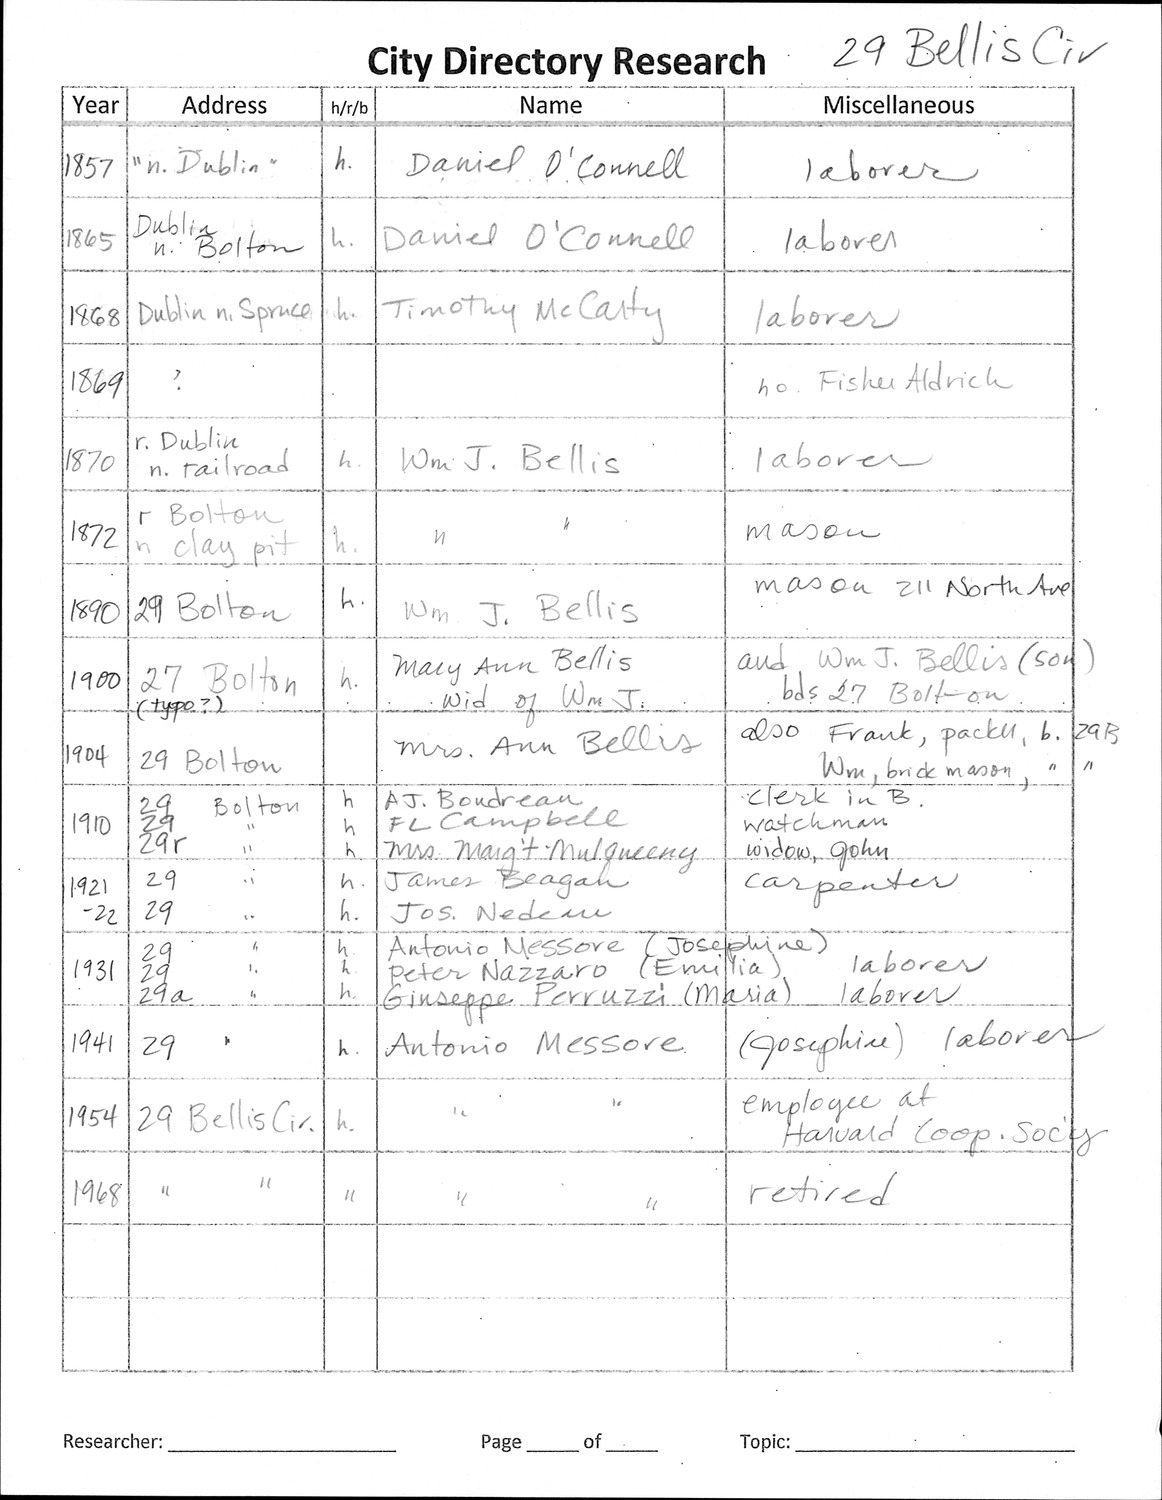 29 Bellis Cir
City Directory Research
Year Address h/r/b Name Miscellaneous
1857 "n. Dublin" h. Daniel O'Connell laborer
1865 Dublin n. Bolton h. Daniel O'Connell laborer
1868 Dublin n. Spruce h. Timothy McCarty laborer
1869 ? ho. Fisher Aldrich
1870 r. Dublin n. railroad h. Wm J. Bellis laborer
1872 r Bolton n clay pit h. " " mason
1890 29 Bolton h. Wm J. Bellis mason 211 North Ave
1900 27 Bolton (typo?) h. Mary Ann Bellis wid of Wm J. and Wm J. Bellis (son) bds 27 Bolton
1904 29 Bolton Mrs. Ann Bellis also Frank, packer, b. 29B
Wm, brick mason, " "
1910 29 Bolton h A.J. Boudreau clerk in B.
29 " h FL Campbell watchman
29r " h Mrs. Marg't Mulqueeny widow, John
1921 29 " h. James Beagan carpenter
-22 29 " h. Jos. Nedeau
1931 29 " h Antonio Messore (Josephine)
29 " h Peter Nazzaro (Emilia) laborer
29a " h. Giuseppe Perruzzi (Maria) laborer
1941 29 " h. Antonio Messore (Josephine) laborer
1954 29 Bellis Cir. h. " " employee at
Harvard Coop. Soc'y
1968 " " " " " retired
Researcher: Page of Topic: